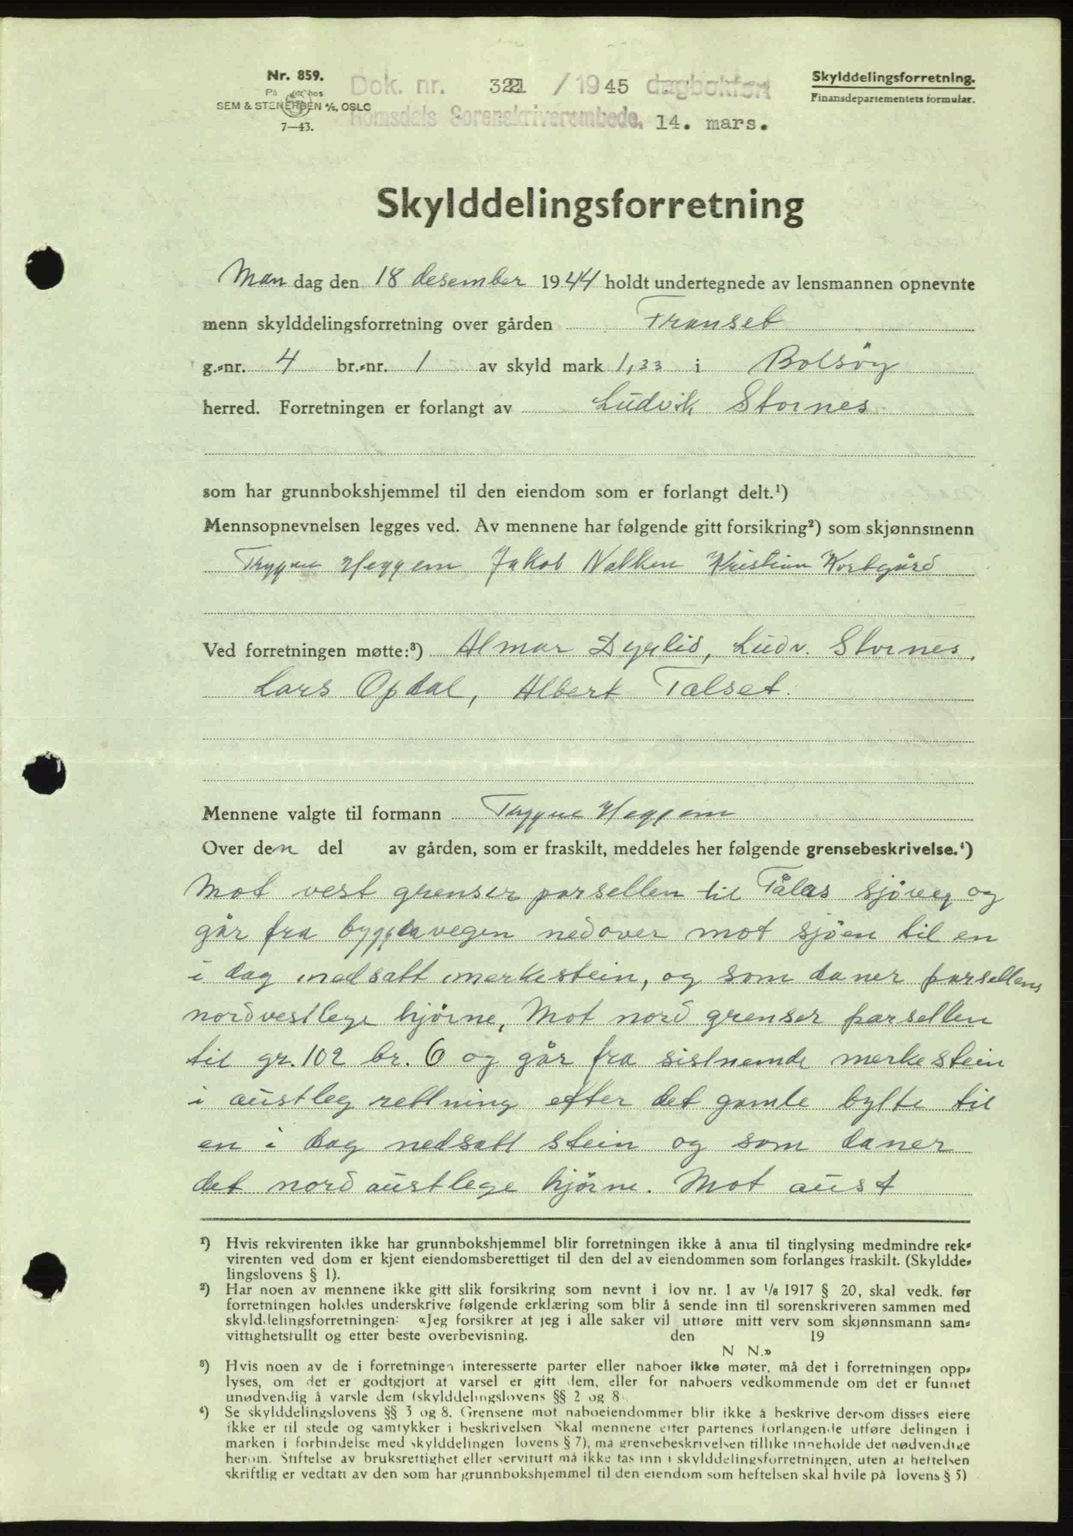 Nr. 859.
SEM & STENERSEN A/S, OSLO
7—43.
Dok. nr. 321 /1945 dagbokført
Romsdals Sorenskriverembede, 14. mars.
Skylddelingsforretning.
Finansdepartementets formular.
Skylddelingsforretning
Mandag den 18 desember 1944 holdt undertegnede av lensmannen opnevnte
menn skylddelingsforretning over gården Franset
g.-nr. 4 br.-nr. 1 av skyld mark 1,33 i Bolsöy
herred. Forretningen er forlangt av Ludvik Stornes
som har grunnbokshjemmel til den eiendom som er forlangt delt.¹)
Mennsopnevnelsen legges ved. Av mennene har følgende gitt forsikring²) som skjønnsmenn
Trygve Heggem Jakob Nakken Kristian Kortgård
Ved forretningen møtte:³) Almar Dyrlid, Ludv. Stornes,
Lars Opdal, Albert Talset.
Mennene valgte til formann Trygve Heggem
Over den del av gården, som er fraskilt, meddeles her følgende grensebeskrivelse.⁴)
Mot vest grenser parsellen til Tålas sjöveg og
går fra bygdavegen nedover mot sjöen til en
i dag nedsatt merkestein, og som daner parsellens
nordvestlege hjörne, Mot nord grenser parsellen
til gr. 102 br. 6 og går fra sistnemde merkestein
i austleg rettning efter det gamle bytte til
en i dag nedsatt stein og som daner
det nordaustlege hjörne. Mot aust
¹) Hvis rekvirenten ikke har grunnbokshjemmel blir forretningen ikke å anta til tinglysing medmindre rek-
virenten ved dom er kjent eiendomsberettiget til den del av eiendommen som forlanges fraskilt. (Skyldde-
lingslovens § 1).
²) Har noen av mennene ikke gitt slik forsikring som nevnt i lov nr. 1 av 1/6 1917 § 20, skal vedk. før
forretningen holdes underskrive følgende erklæring som blir å sende inn til sorenskriveren sammen med
skylddelingsforretningen: «Jeg forsikrer at jeg i alle saker vil utføre mitt verv som skjønnsmann sam-
vittighetsfullt og etter beste overbevisning. den 19
N N.»
³) Hvis noen av de i forretningen interesserte parter eller naboer ikke møter, må det i forretningen opp-
lyses, om det er godtgjort at varsel er gitt dem, eller for naboers vedkommende om det er funnet
unødvendig å varsle dem (skylddelingslovens §§ 2 og 8.
⁴) Se skylddelingslovens §§ 3 og 8. Grensene mot naboeiendommer blir ikke å beskrive dersom disses eiere
ikke er til stede og samtykker i beskrivelsen Skal mennene etter partenes forlangende utføre delingen i
marken i forbindelse med skylddelingen lovens § 7), må grensebeskrivelsen tillike inneholde det nødvendige
herom. Stiftelse av bruksrettighet eller servitutt må ikke tas inn i skylddelingsforretningen, uten at heftelsen
skriftlig er vedtatt av den som har grunnbokshjemmel til den eiendom som heftelsen skal hvile på lovens § 5)